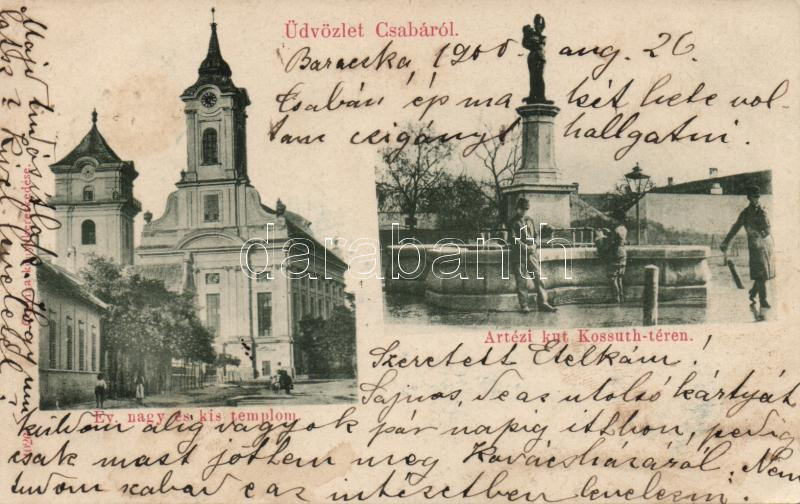 Üdvözlet Csabáról.
Baracska 1900 aug. 26.
Csabán ép ma két hete vol-
tam czigányt hallgatni.
darabanth.com
Artézi kut Kossuth-téren.
Ev. nagy és kis templom.
Szeretett Etelkám!
Sajnos, de az utolsó kártyát
küldöm alig vagyok pár napig itthon, pedig
csak most jöttem meg Kovácsházáról. Nem
tudom szabad e az intézetben levelezni.